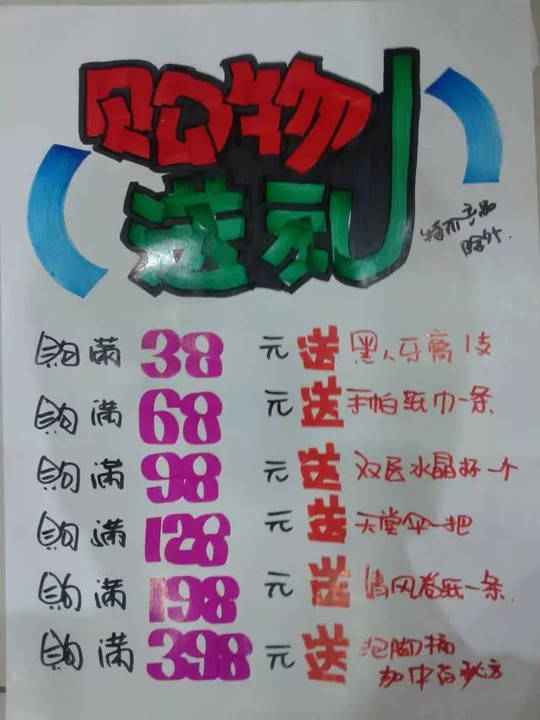 购物
送礼
特价产品
除外.
购满38元送黑人牙膏1支
购满68元送手帕纸巾一条
购满98元送双层水晶杯一个
购满128元送天堂伞一把
购满198元送清风卷纸一条.
购满398元送泡脚桶
加中药秘方